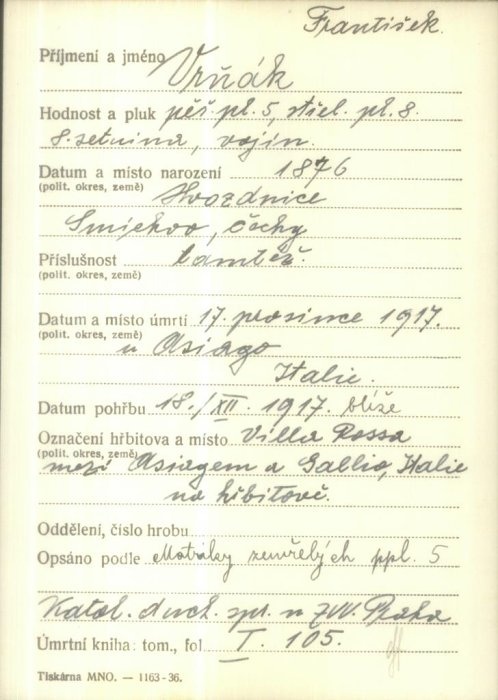 František.
Příjmení a jméno Vrňák
Hodnost a pluk pěš. pl. 5, střel. pl. 8.
8. setnina, vojín.
Datum a místo narození 1876
(polit. okres, země) Hvozdnice
Smíchov, Čechy
Příslušnost tamtéž.
(polit. okres, země)
Datum a místo úmrtí 17. prosince 1917.
(polit. okres, země) u Asiago
Italie.
Datum pohřbu 18./XII. 1917. blíže
Označení hřbitova a místo Villa Rossa
(polit. okres, země) mezi Asiagem a Gallio, Italie
na hřbitově.
Oddělení, číslo hrobu
Opsáno podle Matriky zemřelých ppl. 5
Katol. duch. spr. u ZVV. Praha
Úmrtní kniha: tom., fol. I. 105.
Tiskárna MNO. — 1163-36.